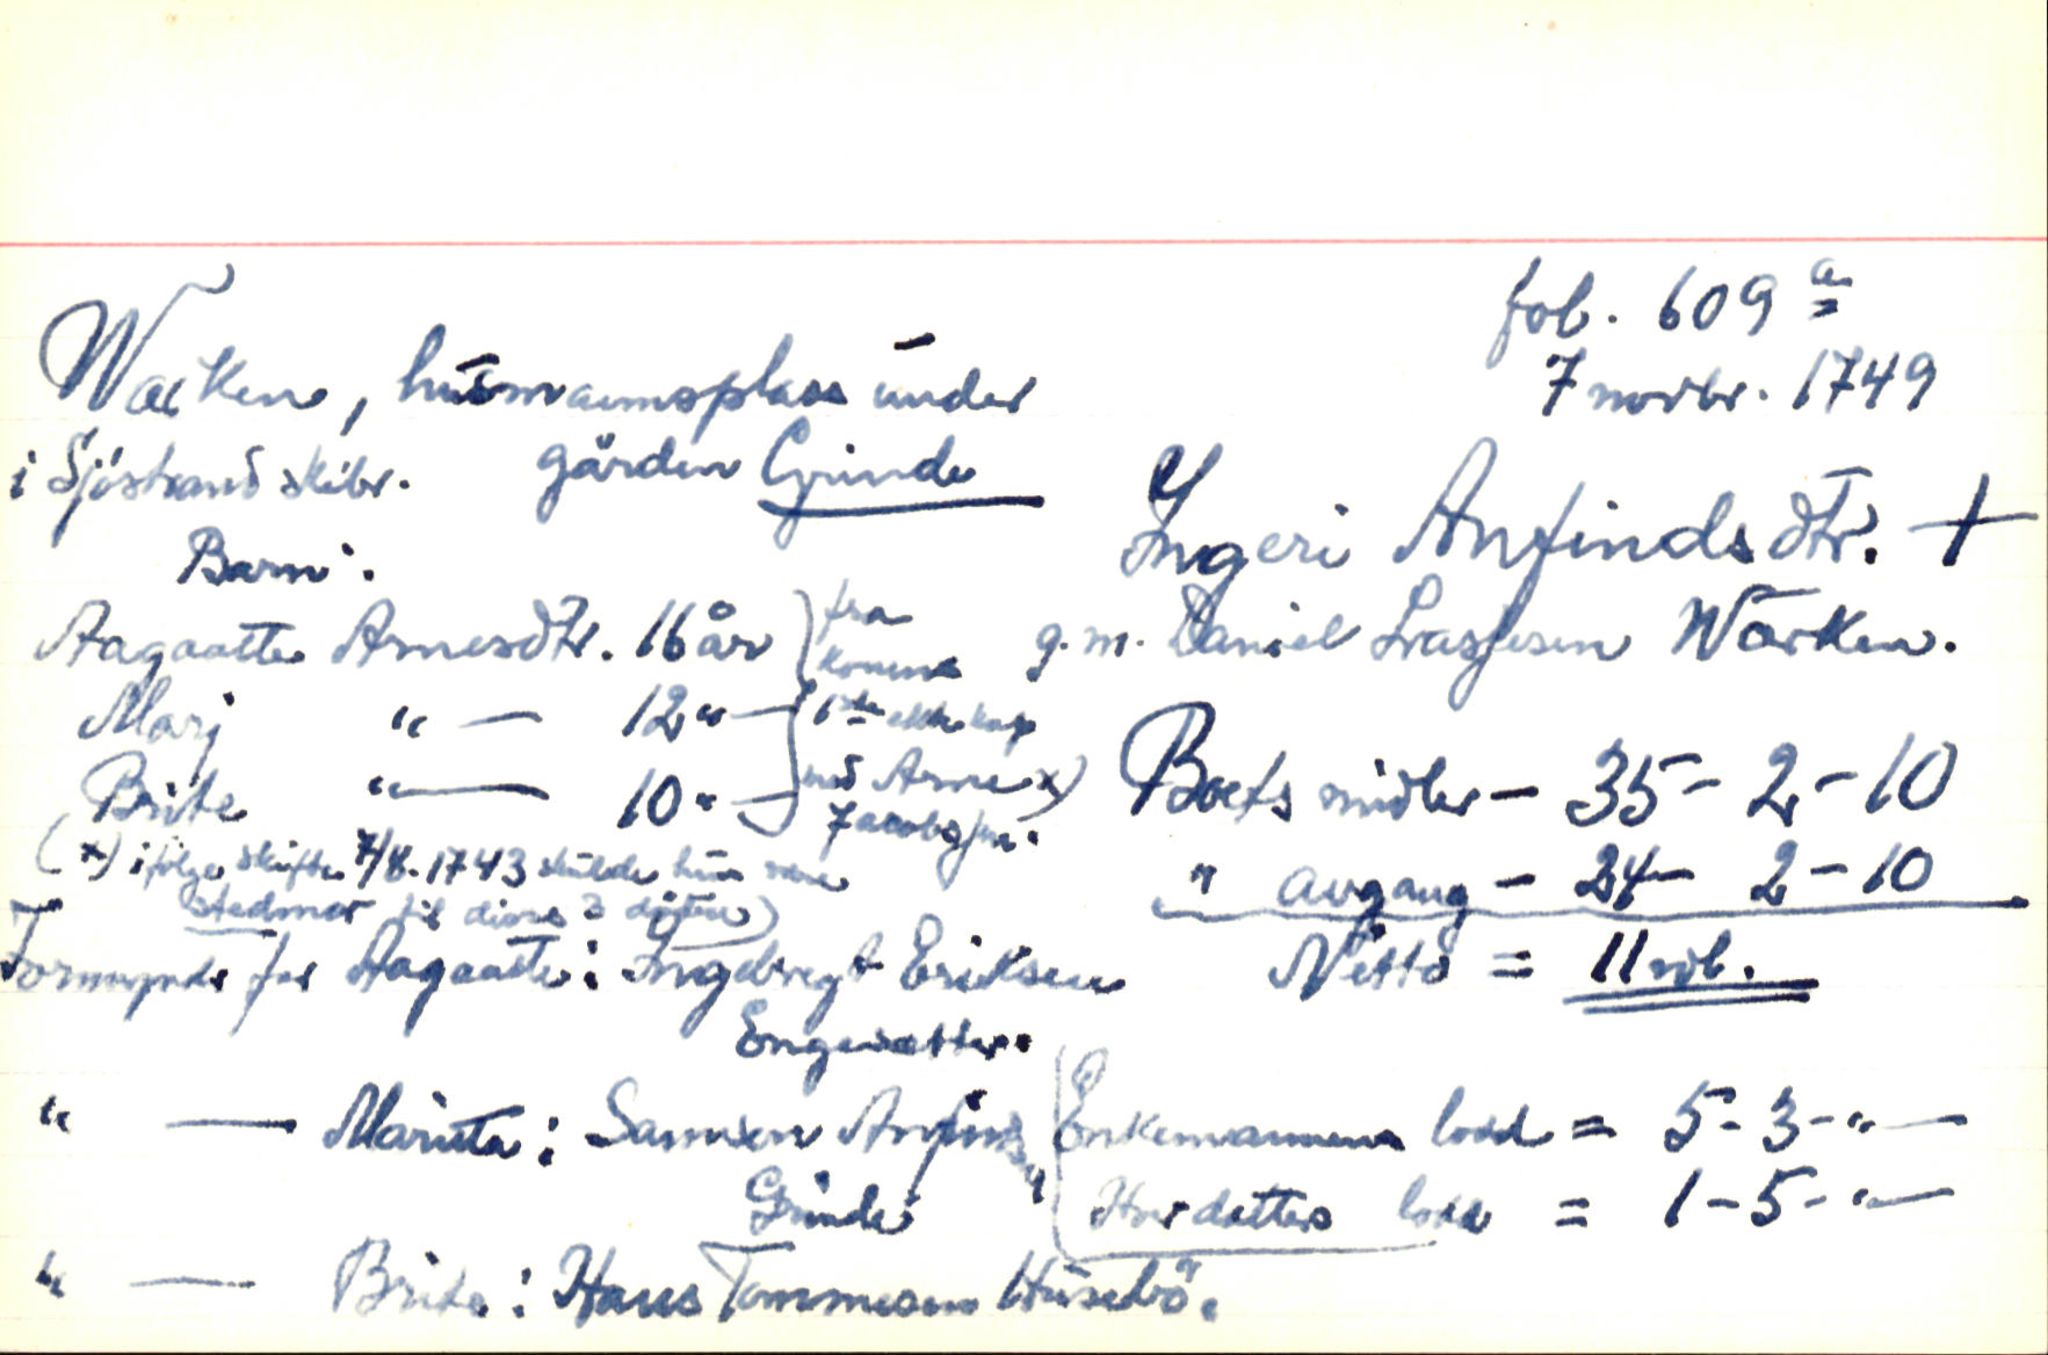 fol. 609 a
7 novbr. 1749
Wacken, husmannsplass under
i Sjöstrand skibr. gården Grinde
Ingeri Anfindsdtr. +
g.m. Daniel Lassesen Wacken.
Barn:
Aagaatte Arnesdtr. 16 år
Marj " — 12 " —
Brite " — 10 " —
fra
konens
1ste ekteskap
med Arne x)
Jacobsen.
(x) ifölge skifte 7/8. 1743 skulde hun være
stedmor til disse 3 dötre)
Boets midler — 35 - 2 - 10
" avgang — 24 - 2 - 10
Netto = 11 rdl.
Formynder for Aagaatte: Ingebregt Eriksen
Engesætter.
" — Maritta: Samson Anfinds.
Grinde
" — Brite: Hans Tommesen Husebö.
Enkemannens lodd = 5 - 3 - " —
Hver datters lodd = 1 - 5 - " —